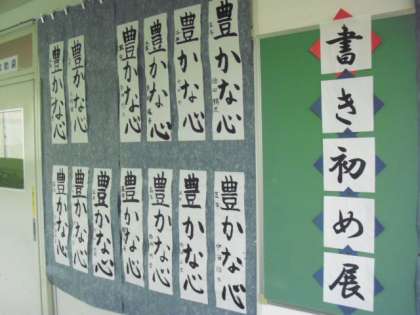 書き初め展
豊かな心
豊かな心
豊かな心
豊かな心
豊かな心
豊かな心
豊かな心
豊かな心
豊かな心
豊かな心
豊かな心
豊かな心
豊かな心